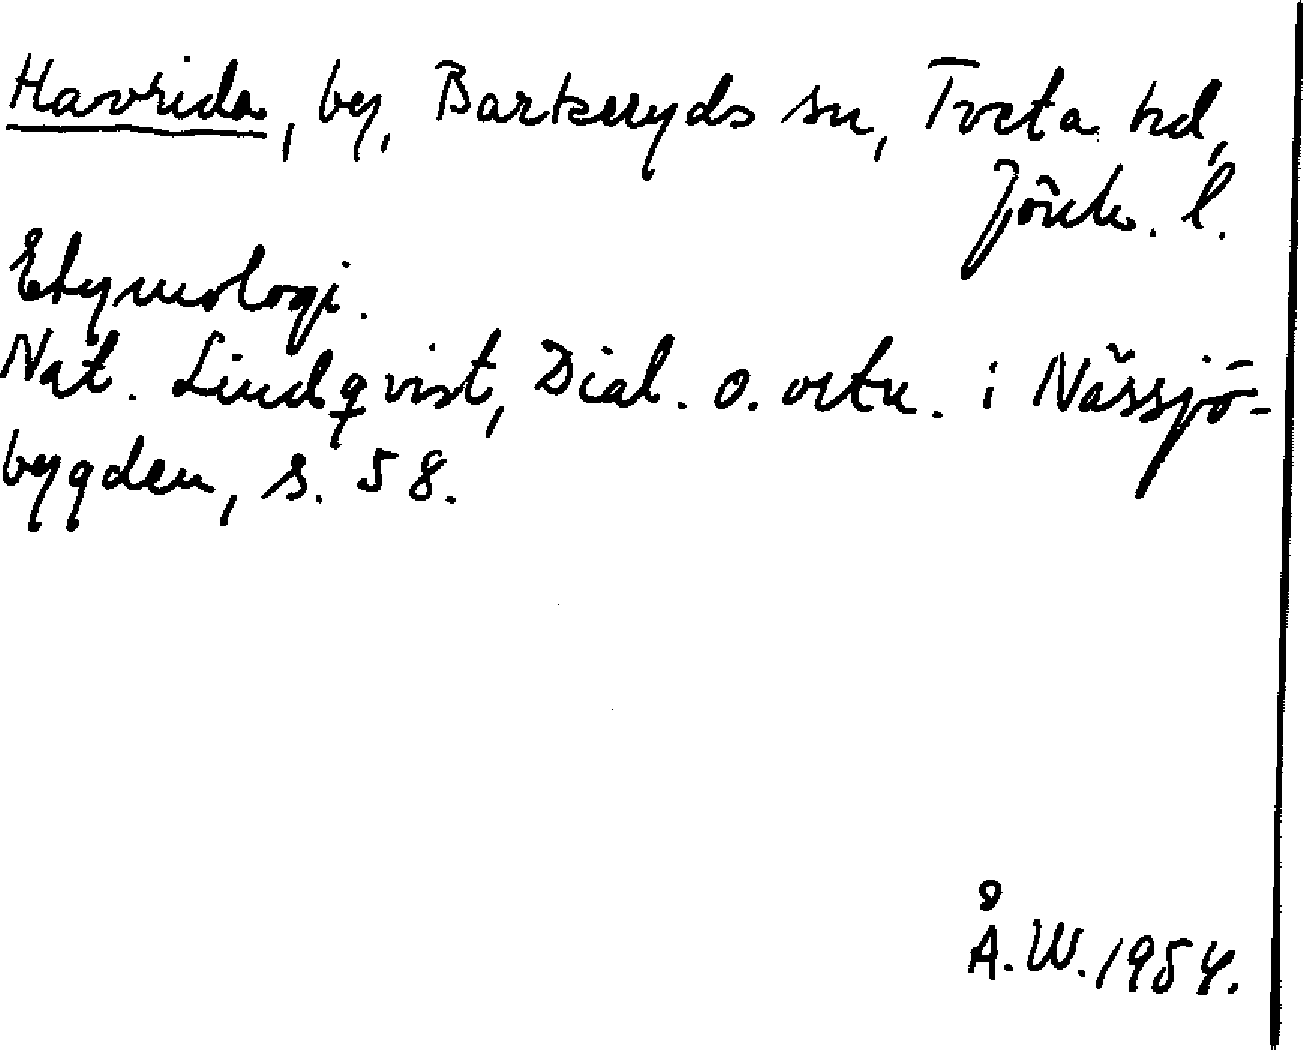 Havrida, by, Barkeryds sn, Tveta hd,
Jönk. l.
Etymologi.
Nat. Lindqvist, Dial. o. ortn. i Nässjö-
bygden, s. 58.
Å. W. 1954.